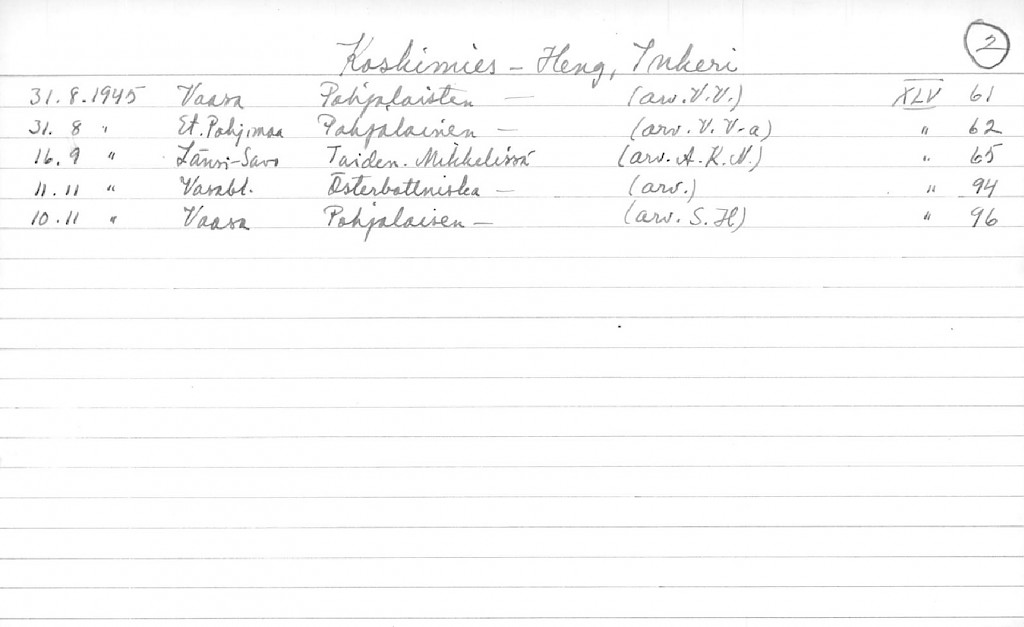 2
Koskimies - Heng, Inkeri
31. 8. 1945 Vaasa Pohjalaisten — (arv. V. V.) XLV 61
31. 8 " Et. Pohjmaa Pohjalainen — (arv. V. V-a) " 62
16. 9 " Länsi-Savo Taiden. Mikkelissä (arv. A. K. N.) " 65
11. 11 " Vasabl. Österbottniska — (arv.) " 94
10. 11 " Vaasa Pohjalaisen — (arv. S. H) " 96